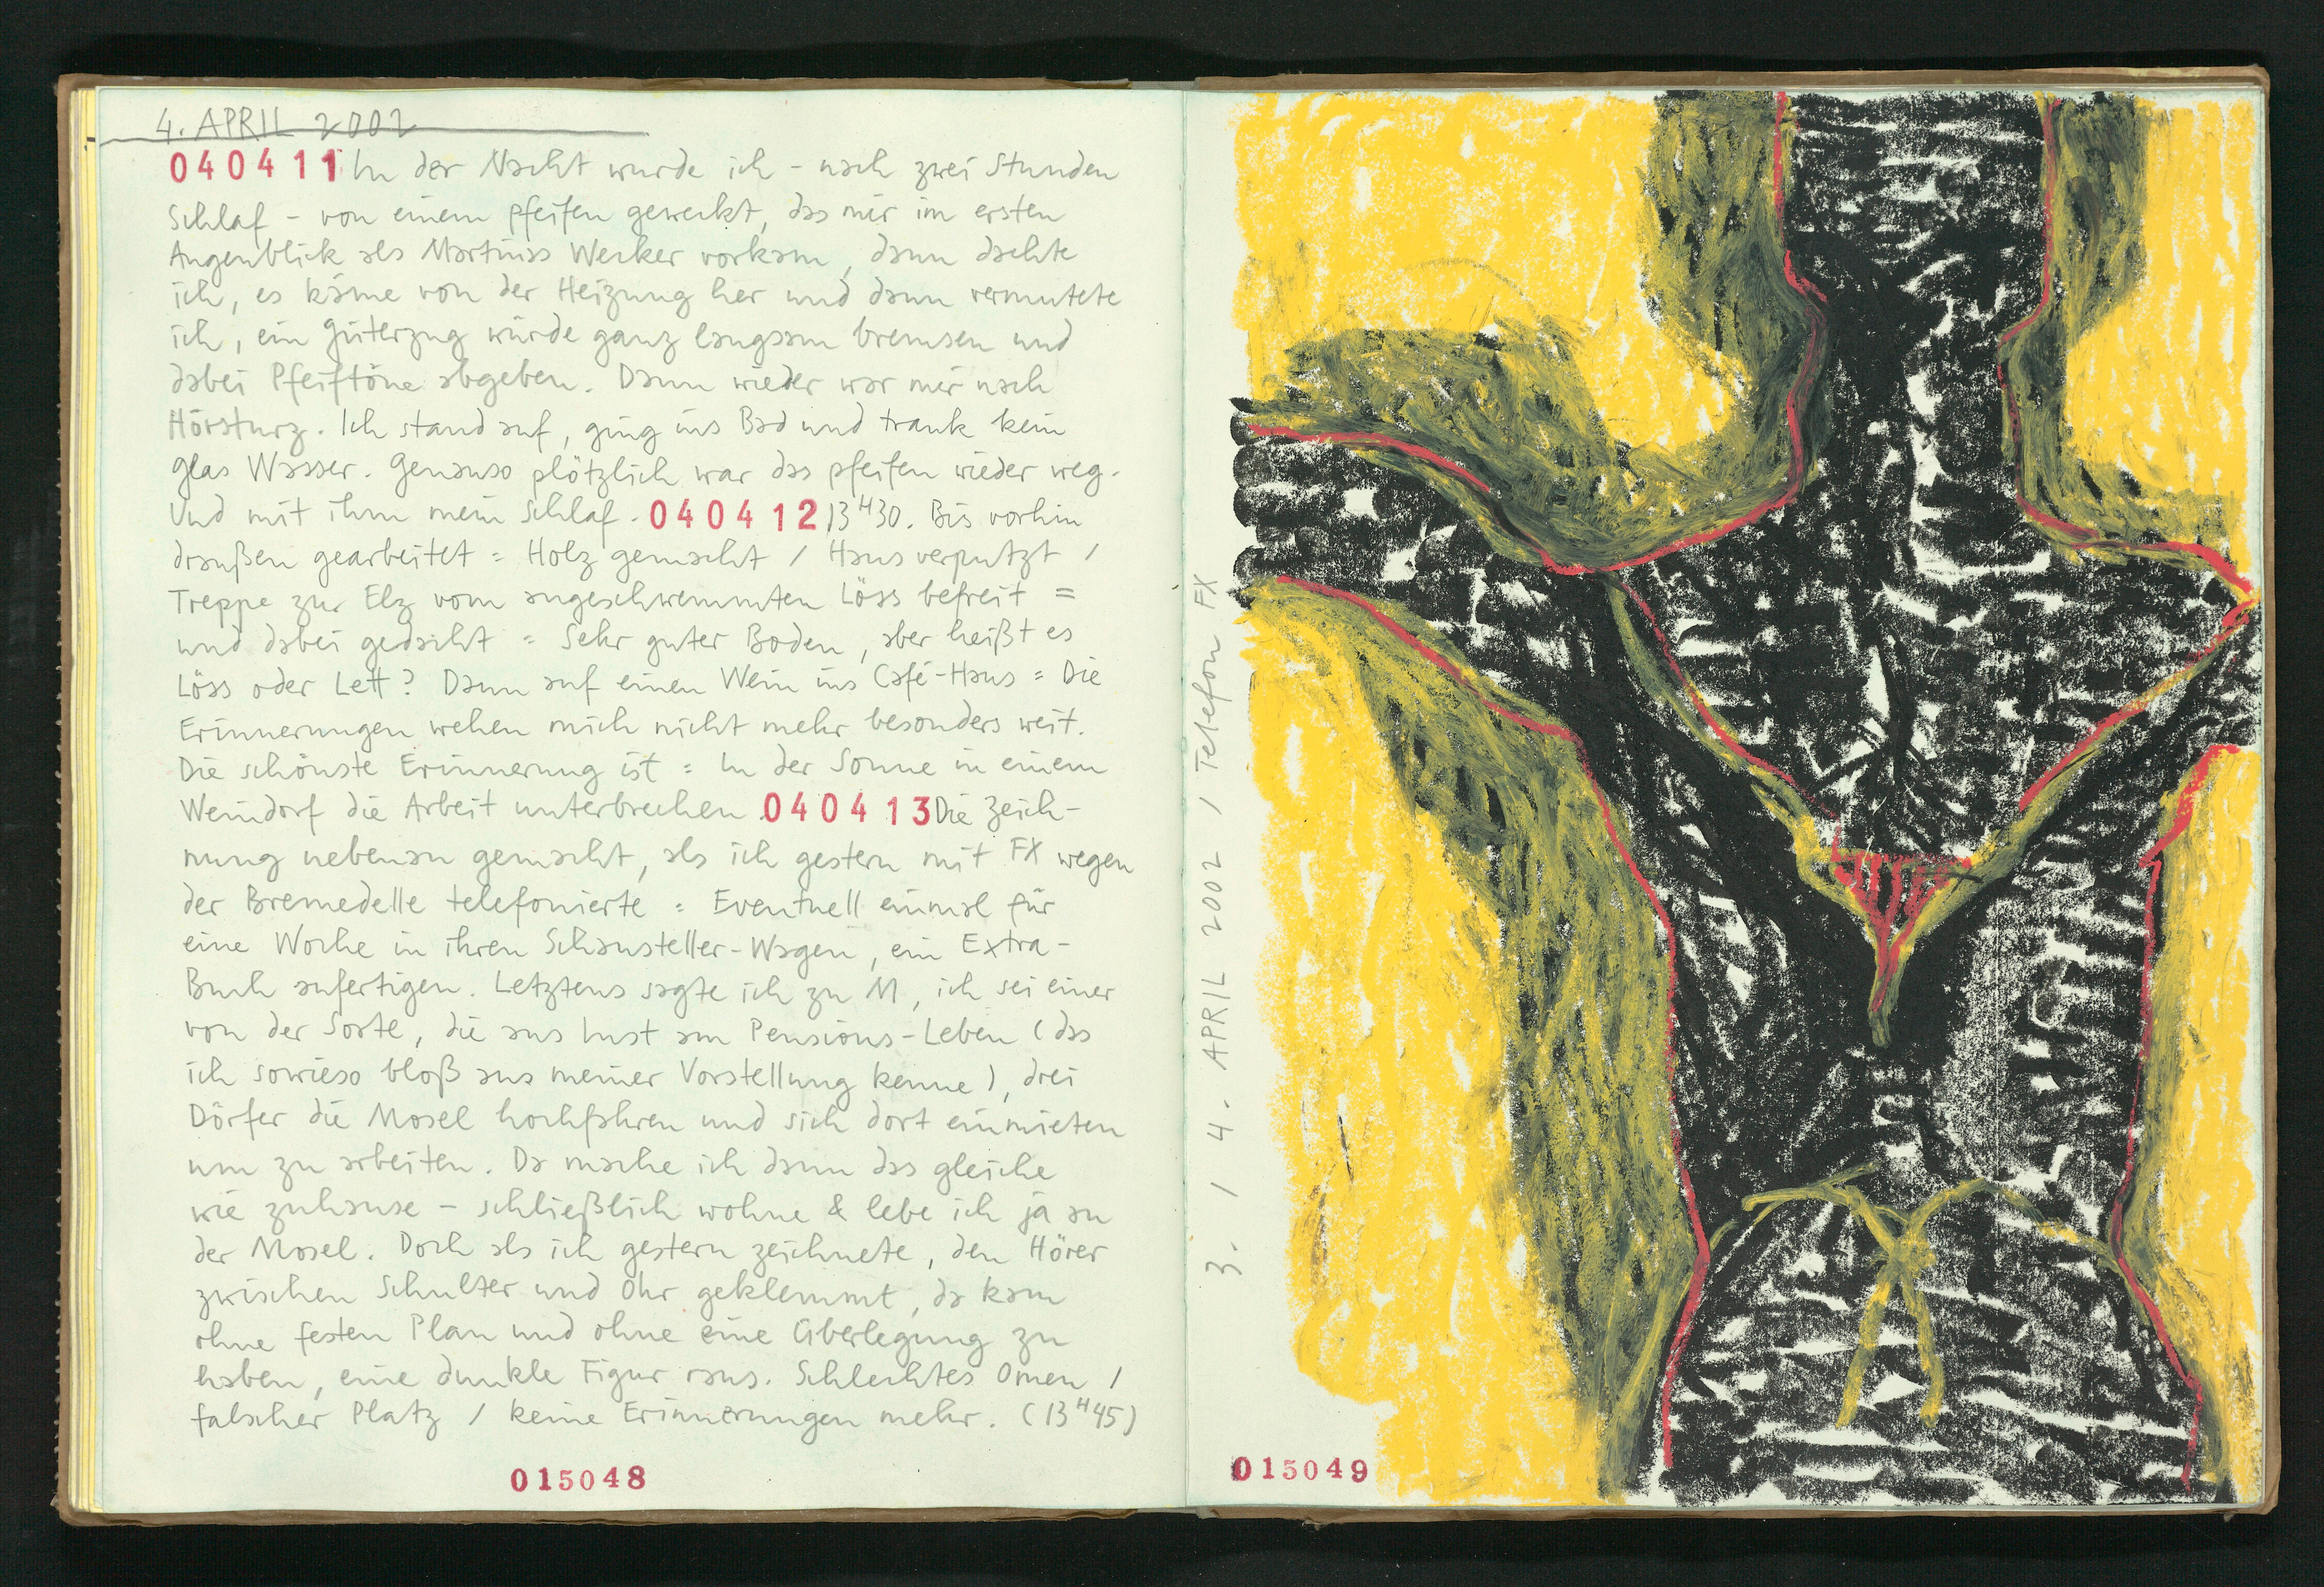 4. APRIL 2002
040411 In der Nacht wurde ich - nach zwei Stunden
Schlaf - von einem Pfeifen geweckt, das mir im ersten
Augenblick als Martinas Wecker vorkam, dann dachte
ich, es käme von der Heizung her und dann vermutete
ich, ein Güterzug würde ganz langsam bremsen und
dabei Pfeiftöne abgeben. Dann wieder war mir nach
Hörsturz. Ich stand auf, ging ins Bad und trank kein
Glas Wasser. Genauso plötzlich war das Pfeifen wieder weg.
Und mit ihm mein Schlaf. 040412 13H30. Bis vorhin
draußen gearbeitet = Holz gemacht / Haus verputzt /
Treppe zur Elz vom angeschwemmten Löss befreit =
und dabei gedacht = Sehr guter Boden, aber heißt es
Löss oder Lett? Dann auf einen Wein ins Café-Haus = Die
Erinnerungen wehen mich nicht mehr besonders weit.
Die schönste Erinnerung ist = In der Sonne in einem
Weindorf die Arbeit unterbrechen. 040413 Die Zeich-
nung nebenan gemacht, als ich gestern mit FX wegen
der Bremedelle telefonierte = Eventuell einmal für
eine Woche in ihren Schausteller-Wagen, ein Extra-
Buch anfertigen. Letztens sagte ich zu M, ich sei einer
von der Sorte, die aus Lust am Pensions-Leben (das
ich sowieso bloß aus meiner Vorstellung kenne), drei
Dörfer die Mosel hochfahren und sich dort einmieten
um zu arbeiten. Da mache ich dann das gleiche
wie zuhause - schließlich wohne & lebe ich ja an
der Mosel. Doch als ich gestern zeichnete, den Hörer
zwischen Schulter und Ohr geklemmt, da kam
ohne festen Plan und ohne eine Überlegung zu
haben, eine dunkle Figur raus. Schlechtes Omen /
falscher Platz / keine Erinnerungen mehr. (13H45)
015048
3. / 4. APRIL 2002 / Telefon FX
015049